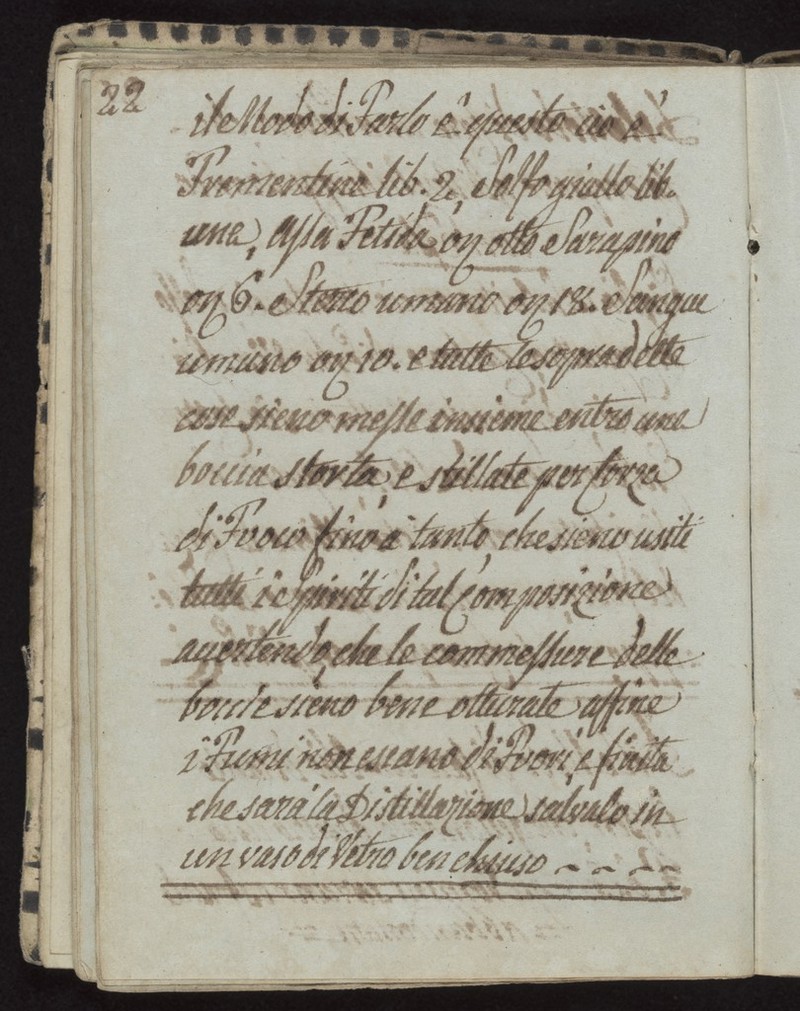 22
il Modo di Farlo è questo cio è
Trementina lib. 2, Solfo giallo lib.
una, Assa Fetida on otto Sarapino
on 6. Sterco umano on 18. Sangue
umano on 10. e tutte le sopradette
cose sieno messe insieme entro una
boccia storta, e stillate per forza
di Fuoco fino a tanto, che sieno usiti
tutti i Spiriti di tal Composizione
avertendo, che le commessure delle
boccie sieno bene otturate affine
i Fumi non escano di Fuori, e finita
che sarà la Distillazione salvalo in
un vaso di Vetro ben chiuso